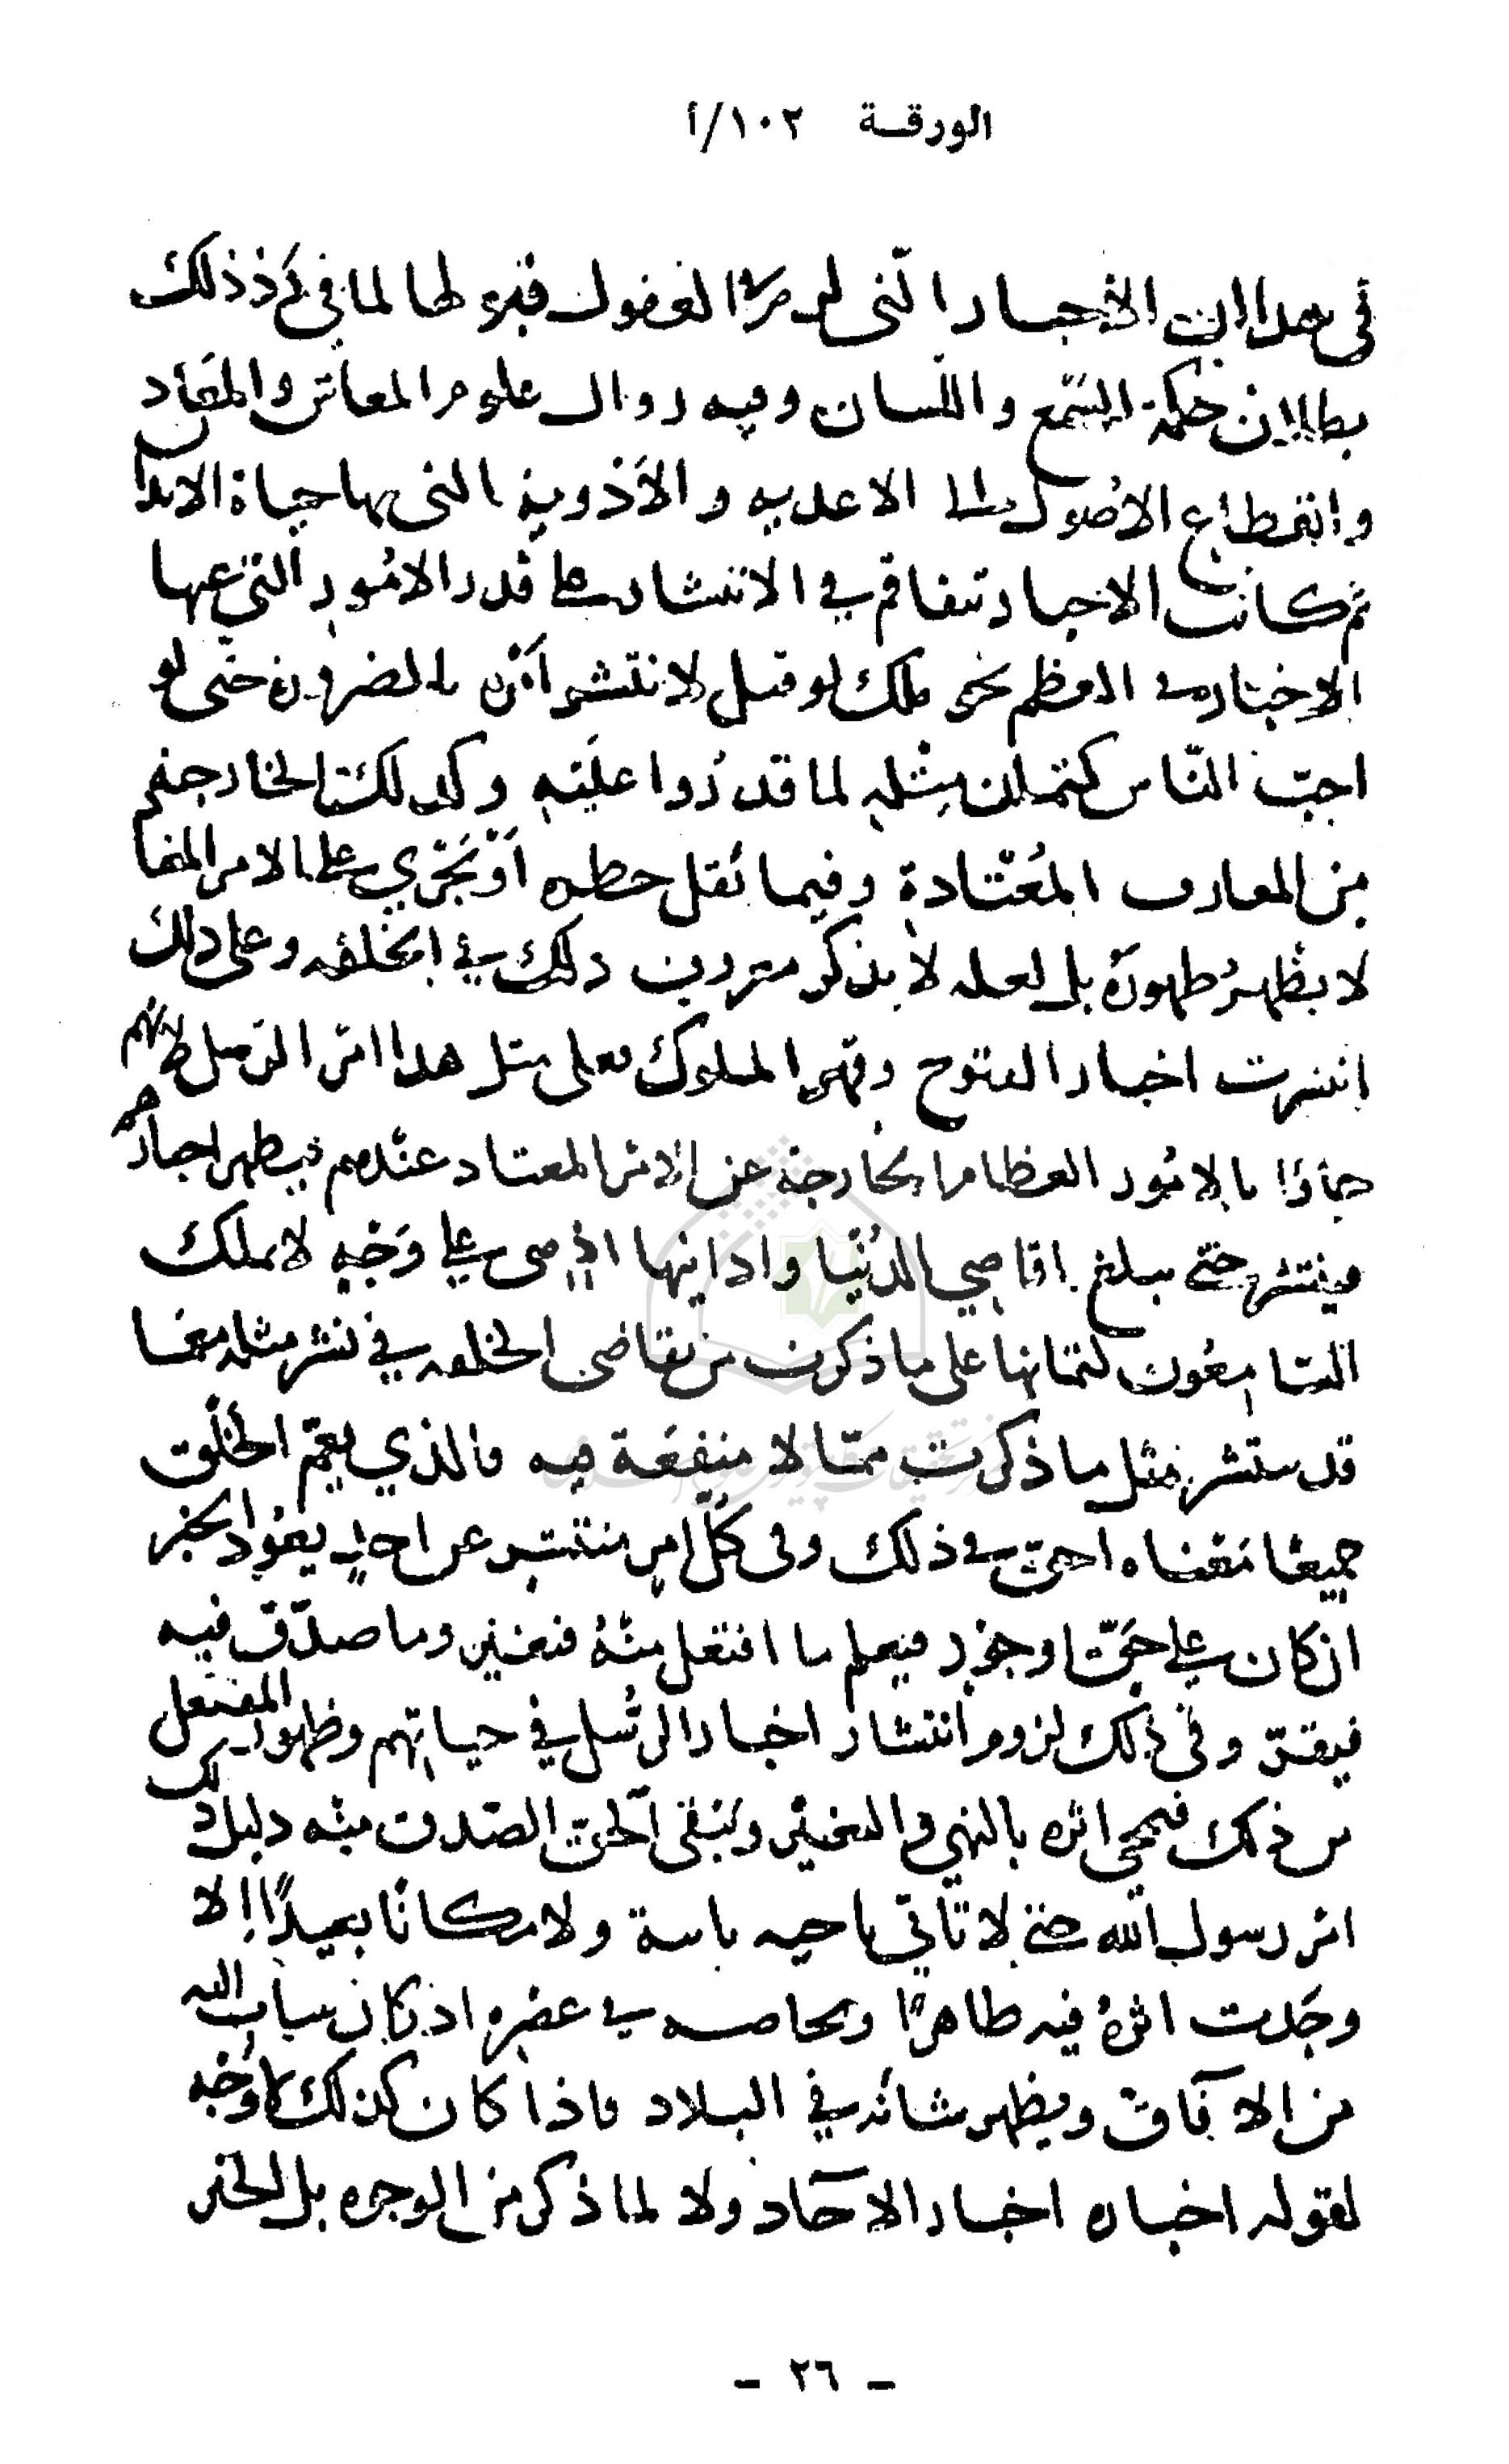 الورقة ١٠٢/أ
في هذا ان الأخبار التي العقول قبولها لما في رد ذلك
بطلان حكمة السمع واللسان وفيه زوال علوم المعاش والمعاد
وانقطاع الأصول الاغذيه والأدوية التي بها حياة الابدان
ثم كانت الاخبار تتفاقم في الانتشار على قدر الامور التي عنها
الاخبار في العظم نحو ملك لو قتل لانتشر أمره بالضرورة حتى لو
احب الناس كتمان مثله لما قدروا عليه وكذلك الخارجة
من المعارف المعتادة وفيما نقل على الامر
لا يظهر ظهوره بل لعله لا يذكر ذلك في الخلقه وعلى ذلك
انتشرت اخبار الفتوح وقهر الملوك فعلى مثل هذا امر الرسل لانهم
جاؤا بالامور العظام الخارجة عن الامر المعتاد عندهم فيظهر اخبارهم
وينتشر حتى يبلغ اقاصي الدنيا وادانيها على وجه لا يملك
السامعون كتمانها على ما ذكرت من تقاضى الخلقه في نشر مثله
قد ينتشر مثل ما ذكرت مما لا منفعة فيه فالذي يعم الخلق
جميعا معناه احق في ذلك وفي كل امر منتشر عن احاد يعود الخبر
ان كان على حق او جور فيعلم ما افتعل منه فيغير وما صدق فيه
فيقر وفي ذلك لزوم انتشار اخبار الرسل في حياتهم وظهور المفتعل
من ذلك فيمحى اثره بالنهي والتغيير ويبقى الحق الصدق منه دليل ذلك
امر رسول الله حتى لا تاتي ناحيه ولا مكانا بعيدا الا
وجدت اثره فيه ظاهرا وبخاصه في عصره اذ كان الله
من الافاق ويظهر شانه في البلاد فاذا كان كذلك وجه
لقوله اخباره اخبار الآحاد ولا لما ذكر من الوجوه بل الخبر
- ٢٦ -